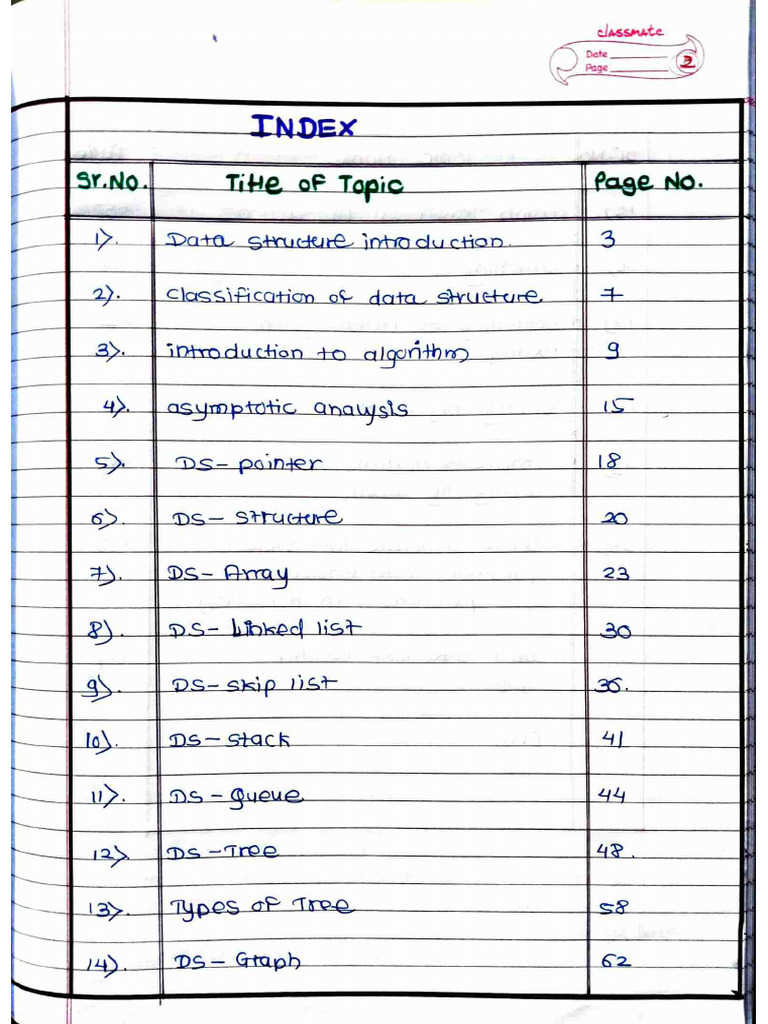 classmate
Date
Page 2
INDEX
Sr.No. Title of Topic Page No.
1). Data structure introduction. 3
2). classification of data structure 7
3). introduction to algorithm 9
4). asymptotic analysis 15
5). DS- pointer 18
6). DS- structure 20
7). DS- Array 23
8). DS- Linked list 30
9). DS- skip list 36.
10). DS- stack 41
11). DS- queue 44
12). DS- Tree 48.
13). Types of Tree 58
14). DS- Graph 62